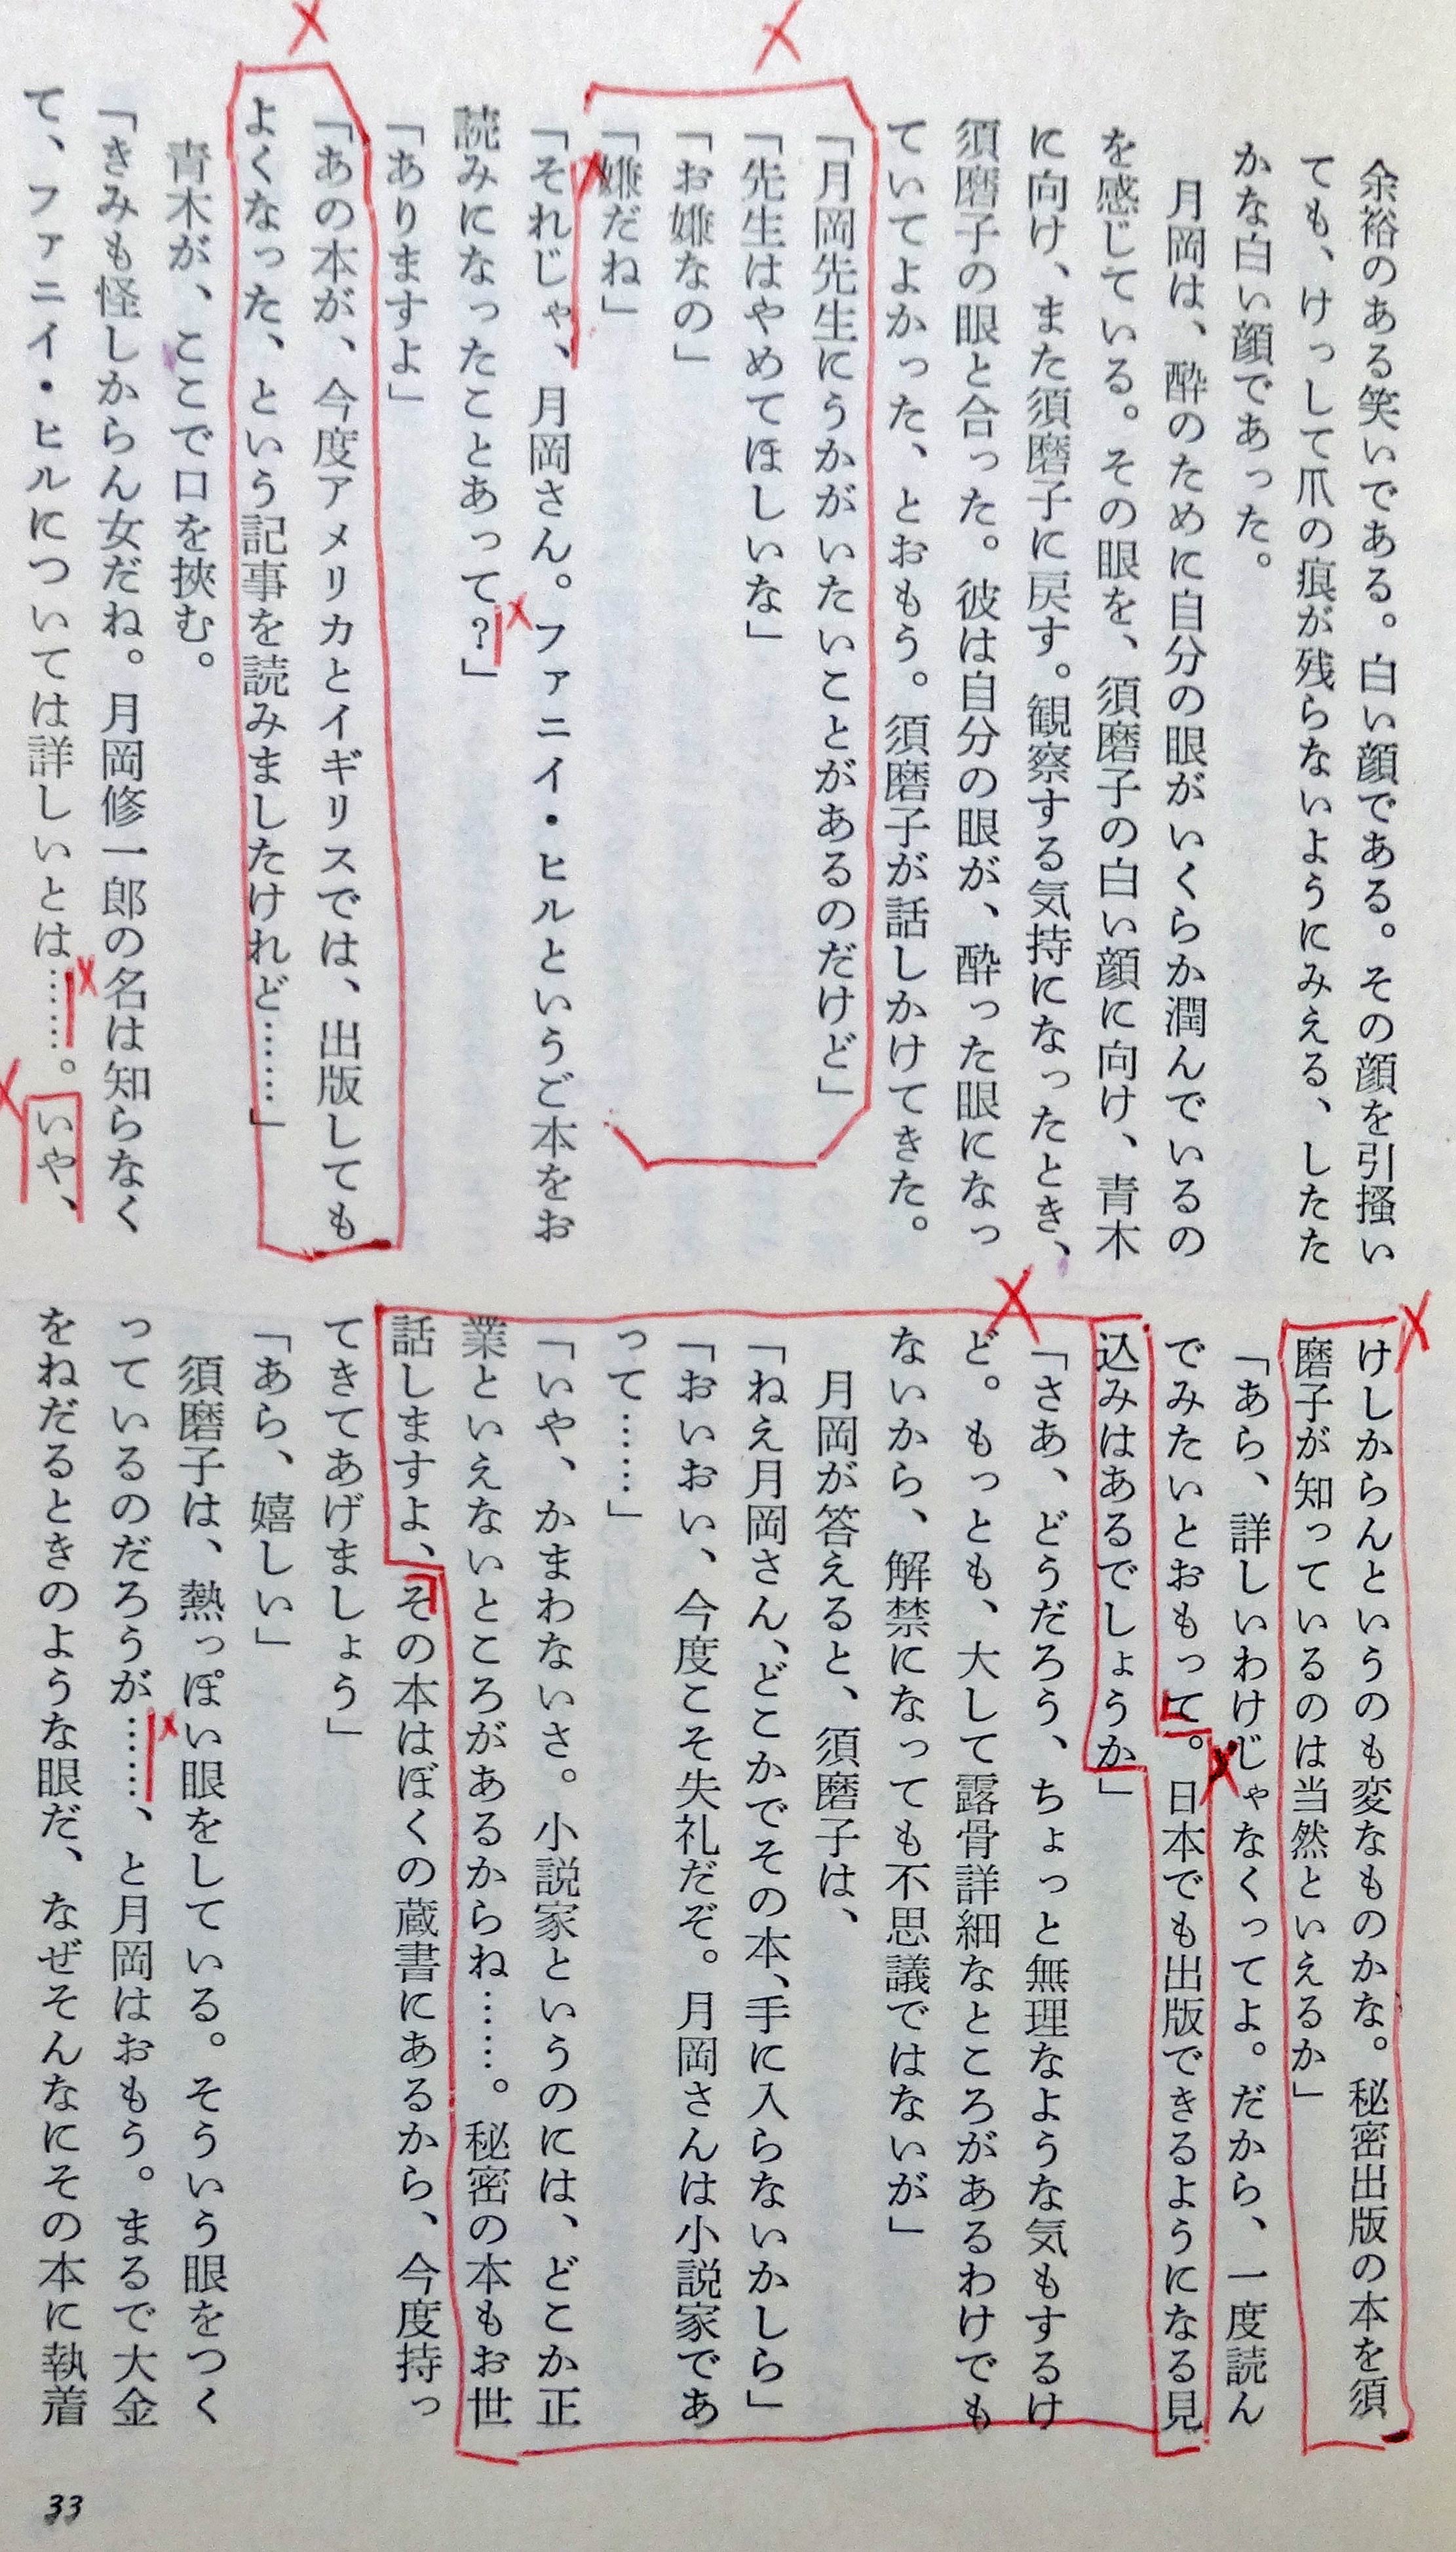 余裕のある笑いである。白い顔である。その顔を引掻い
ても、けっして爪の痕が残らないようにみえる、したた
かな白い顔であった。
月岡は、酔のために自分の眼がいくらか潤んでいるの
を感じている。その眼を、須磨子の白い顔に向け、青木
に向け、また須磨子に戻す。観察する気持になったとき、
須磨子の眼と合った。彼は自分の眼が、酔った眼になっ
ていてよかった、とおもう。須磨子が話しかけてきた。
「月岡先生にうかがいたいことがあるのだけど」
「先生はやめてほしいな」
「お嫌なの」
「嫌だね」
「それじゃ、月岡さん。ファニイ・ヒルというご本をお
読みになったことあって?」
「ありますよ」
「あの本が、今度アメリカとイギリスでは、出版しても
よくなった、という記事を読みましたけれど……」
青木が、ここで口を挾む。
「きみも怪しからん女だね。月岡修一郎の名は知らなく
て、ファニイ・ヒルについては詳しいとは……。いや、
けしからんというのも変なものかな。秘密出版の本を須
磨子が知っているのは当然といえるか」
「あら、詳しいわけじゃなくってよ。だから、一度読ん
でみたいとおもって。日本でも出版できるようになる見
込みはあるでしょうか」
「さあ、どうだろう、ちょっと無理なような気もするけ
ど。もっとも、大して露骨詳細なところがあるわけでも
ないから、解禁になっても不思議ではないが」
月岡が答えると、須磨子は、
「ねえ月岡さん、どこかでその本、手に入らないかしら」
「おいおい、今度こそ失礼だぞ。月岡さんは小説家であ
って……」
「いや、かまわないさ。小説家というのには、どこか正
業といえないところがあるからね……。秘密の本もお世
話しますよ、その本はぼくの蔵書にあるから、今度持っ
てきてあげましょう」
「あら、嬉しい」
須磨子は、熱っぽい眼をしている。そういう眼をつく
っているのだろうが……、と月岡はおもう。まるで大金
をねだるときのような眼だ、なぜそんなにその本に執着
33